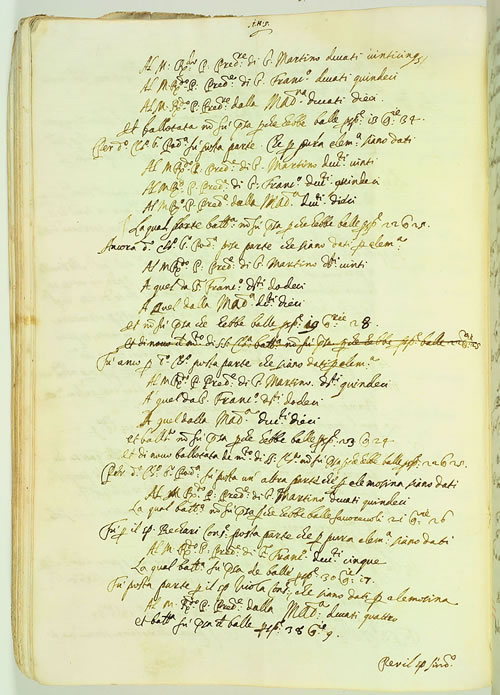 .i.h.s.
Al M: Rdo P. Predre di S. Martino ducati vinticinq3
Al M Rdo P. Predre di S. Franco ducati quindeci
Al M. Rdo P. Predre dalla MADna ducati dieci.
et ballotata nō fu p̄sa p che hebbe balle p̄pe: 13 Cre 34.
Per do Clo S. Podà fu posta parte che p̄ pura elema siano dati
Al M Rdo P. Predre di S. Martino ducti vinti
Al M Rdo P. Predre di S. Franco ductti quindeci
Al M Rdo P. Predre dalla MADna ducti dieci
La qual parte battta nō fu p̄sa p che hebbe balle p̄pe 22 C 25.
Ancora do Clo S. Podà pose parte che siano dati p̄ elema
Al M Rdo P. Predre di S. Martino dti vinti
A quel da S. Franco: dti dodeci
A quel dalla MADna dti dieci
et nō fu p̄sa che hebbe balle p̄pe: 19 Crie 28.
Fu anco p̄ do Clo posta parte che siano dati p elema
Al M Rdo P. Predre di S. Martino: dti quindeci
A quel da S. Franco: dti dodeci
A quel dalla MADna: ducti dieci
et battta nō fu p̄sa p che hebbe balle p̄pe 23 C 24
et di nuovo ballotata de mto di S. Clo nō fu p̄sa p che hebbe balle p̄pe: 22 C 25.
Per do Clo S. Podà fu posta un' altra parte che p̄ elemosina siano dati
Al M. Rdo P. Predre di S. Martino ducati quindeci
La qual battta nō fu p̄sa p che hebbe balle favorevoli 21 Crie 26
Fu p̄ il sp Beccari Cons: posta parte che p̄ pura elema siano dati
Al M. Rdo P. Predre di S. Franco: ducti cinque
La qual battta: fu p̄sa de balle p̄pe: 30 C: 17.
Fu posta parte p̄ il sp Viola Cons, che siano dati p̄ elemosina
Al M: Rdo P. Predre: dalla MADna: ducati quattro
et battta fu p̄sa de balle p̄pe: 38 Ce: 9.
Per il sp sindo: